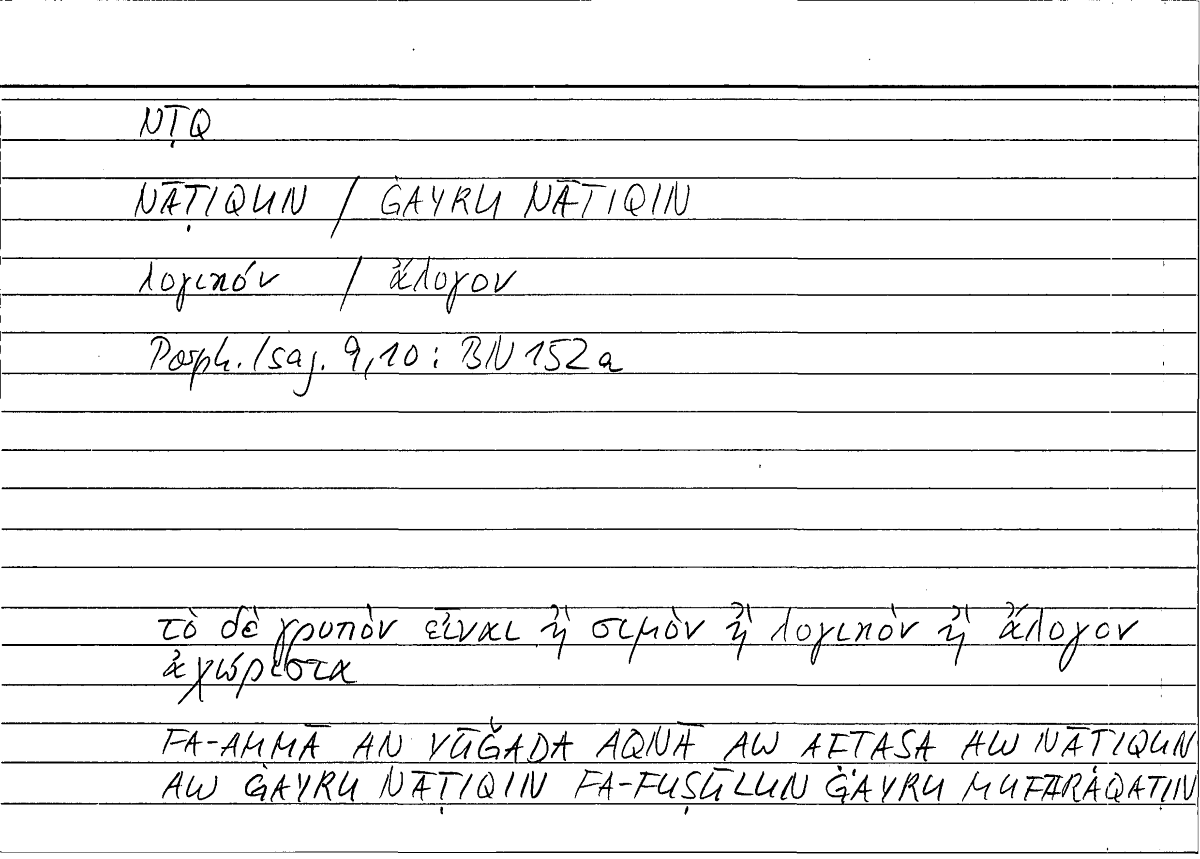 NṬQ
NĀṬIQUN / ĠAYRU NĀTIQIN
λογικόν / ἄλογον
Porph. Isag. 9,10: BN 152a
τὸ δὲ γρυπὸν εἶναι ἢ σιμὸν ἢ λογικὸν ἢ ἄλογον
ἀχώριστα
FA-AMMĀ AN YŪǦADA AQNĀ AW AFTASA AW NĀTIQUN
AW ĠAYRU NĀṬIQIN FA-FUṢŪLUN ĠAYRU MUFĀRAQATIN